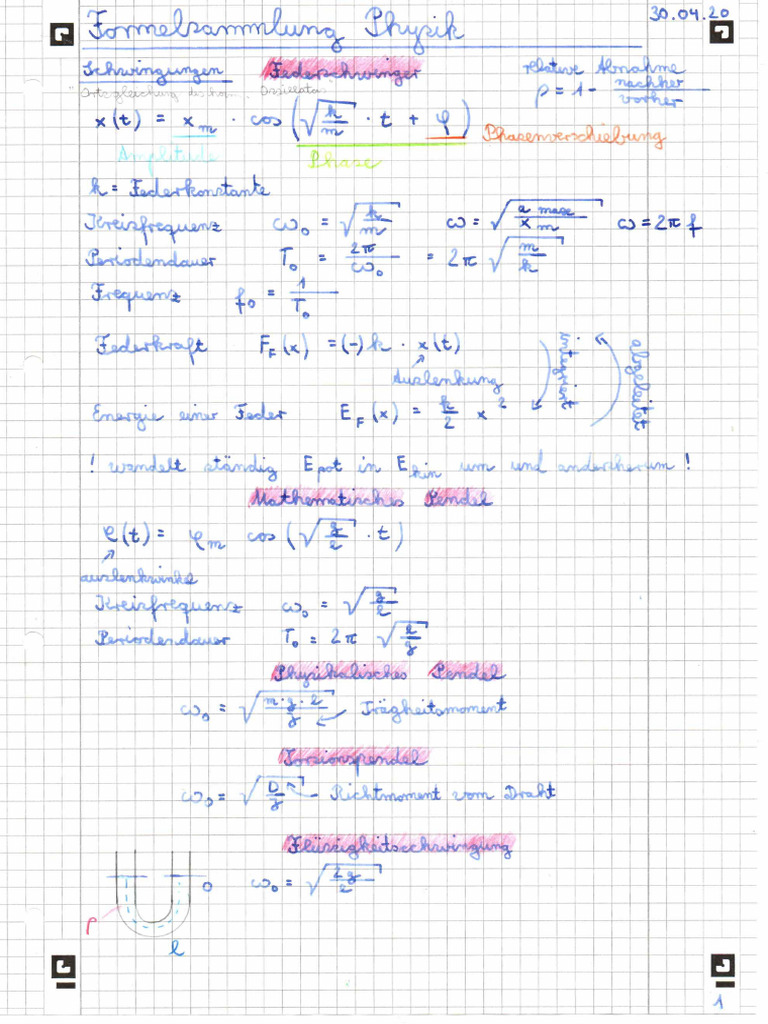 Formelsammlung Physik 30.04.20
Schwingungen Federschwinger relative Abnahme
Ortsgleichung des harm. Oszillators p = 1 - nachher/vorher
x(t) = x_m · cos(√(k/m) · t + φ) Phasenverschiebung
Amplitude Phase
k = Federkonstante
Kreisfrequenz ω₀ = √(k/m) ω = √(a max/x m) ω = 2π f
Periodendauer T₀ = 2π/ω₀ = 2π √(m/k)
Frequenz f₀ = 1/T₀
Federkraft F_F(x) = (-) k · x(t)
Auslenkung
integriert
abgeleitet
Energie einer Feder E_F(x) = k/2 x²
! wandelt ständig E_pot in E_kin um und andersherum !
Mathematisches Pendel
φ(t) = φ_m cos(√(g/l) · t)
auslenkwinkel
Kreisfrequenz ω₀ = √(g/l)
Periodendauer T₀ = 2π √(l/g)
Physikalisches Pendel
ω₀ = √(m·g·l/J) Trägheitsmoment
Torsionspendel
ω₀ = √(D/J) Richtmoment vom Draht
Flüssigkeitsschwingung
0 ω₀ = √(2g/l)
ρ
l
1